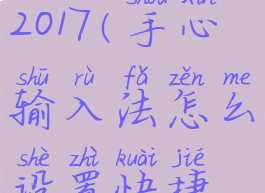 shǒu xīn
2017(手心
shū rù fǎ zěn me
输入法怎么
shè zhì kuài jié
设置快捷